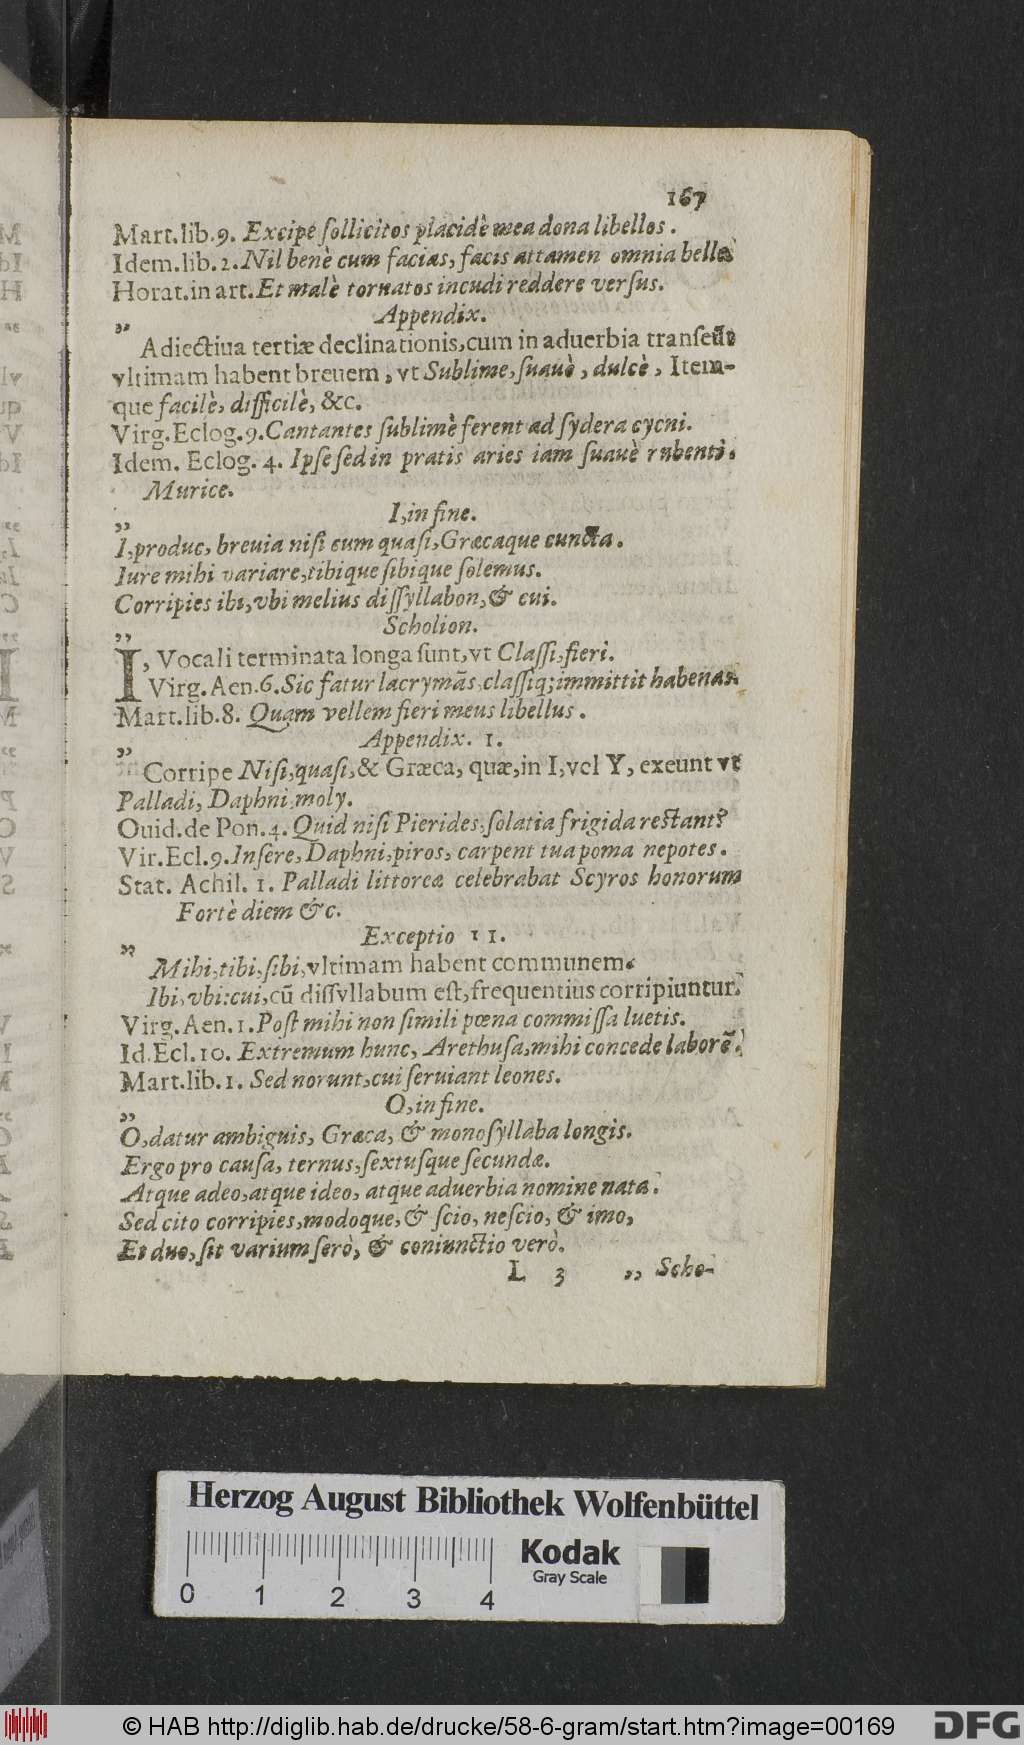 167
Mart.lib.9. Excipe ſollicitos placidè mea dona libellos.
Idem.lib.2. Nil benè cum facias, facis attamen omnia bellè
Horat.in art. Et malè tornatos incudi reddere verſus.
Appendix.
„
Adiectiua tertiæ declinationis, cum in aduerbia tranſeũt
vltimam habent breuem, vt Sublime, ſuauè, dulcè, Item-
que facilè, difficilè, &c.
Virg.Eclog.9. Cantantes ſublimè ferent ad ſydera cycni.
Idem. Eclog. 4. Ipſe ſed in pratis aries iam ſuauè rubenti.
Murice.
I, in fine.
„
I, produc, breuia niſi cum quaſi, Græcaque cuncta.
Iure mihi variare, tibique ſibique ſolemus.
Corripies ibi, vbi melius diſſyllabon, & cui.
Scholion.
„
I, Vocali terminata longa ſunt, vt Claſſi, fieri.
Virg. Aen.6. Sic fatur lacrymãs, claſſiq; immittit habenas.
Mart.lib.8. Quam vellem fieri meus libellus.
Appendix. 1.
„
Corripe Niſi, quaſi, & Græca, quæ, in I, vel Y, exeunt vt
Palladi, Daphni, moly.
Ouid.de Pon.4. Quid niſi Pierides, ſolatia frigida reſtant?
Vir.Ecl.9. Inſere, Daphni, piros, carpent tua poma nepotes.
Stat. Achil. 1. Palladi littoreæ celebrabat Scyros honorum
Fortè diem &c.
Exceptio 11.
„
Mihi, tibi, ſibi, vltimam habent communem.
Ibi, vbi: cui, cũ diſſyllabum eſt, frequentius corripiuntur.
Virg. Aen. 1. Poſt mihi non ſimili pœna commiſſa luetis.
Id.Ecl.10. Extremum hunc, Arethuſa, mihi concede laborẽ.
Mart.lib.1. Sed norunt, cui ſeruiant leones.
O, in fine.
„
O, datur ambiguis, Græca, & monoſyllaba longis.
Ergo pro cauſa, ternus, ſextuſque ſecundæ.
Atque adeo, atque ideo, atque aduerbia nomine nata.
Sed cito corripies, modoque, & ſcio, neſcio, & imo,
Et duo, ſit varium ſerò, & coniunctio verò.
L 3 „ Scho-
Herzog August Bibliothek Wolfenbüttel
Kodak
Gray Scale
0 1 2 3 4
© HAB http://diglib.hab.de/drucke/58-6-gram/start.htm?image=00169
DFG